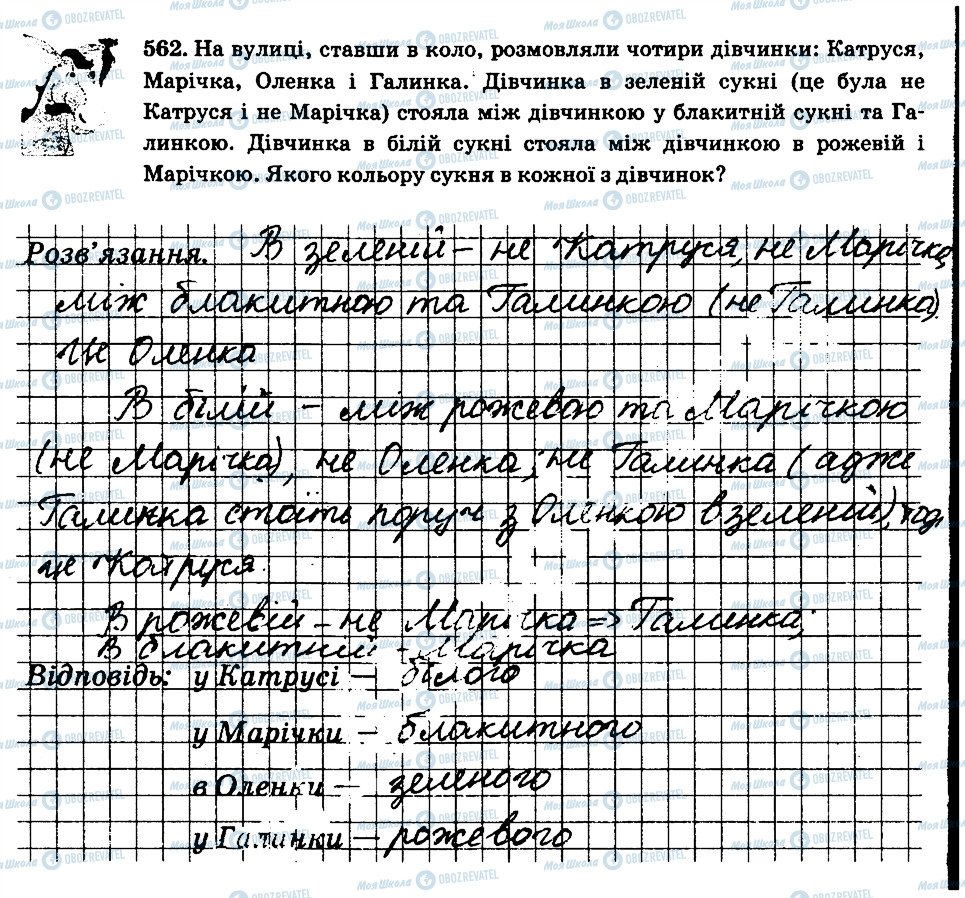 562. На вулиці, ставши в коло, розмовляли чотири дівчинки: Катруся,
Марічка, Оленка і Галинка. Дівчинка в зеленій сукні (це була не
Катруся і не Марічка) стояла між дівчинкою у блакитній сукні та Га-
линкою. Дівчинка в білій сукні стояла між дівчинкою в рожевій і
Марічкою. Якого кольору сукня в кожної з дівчинок?
Розв'язання. В зеленій – не Катруся, не Марічка,
між блакитною та Галинкою (не Галинка)
це Оленка
В білій – між рожевою та Марічкою
(не Марічка), не Оленка, не Галинка (адже
Галинка стоїть поруч з Оленкою в зеленій), тоді
це Катруся.
В рожевій – не Марічка => Галинка;
В блакитній – Марічка
Відповідь: у Катрусі – білого
у Марічки – блакитного
в Оленки – зеленого
у Галинки – рожевого